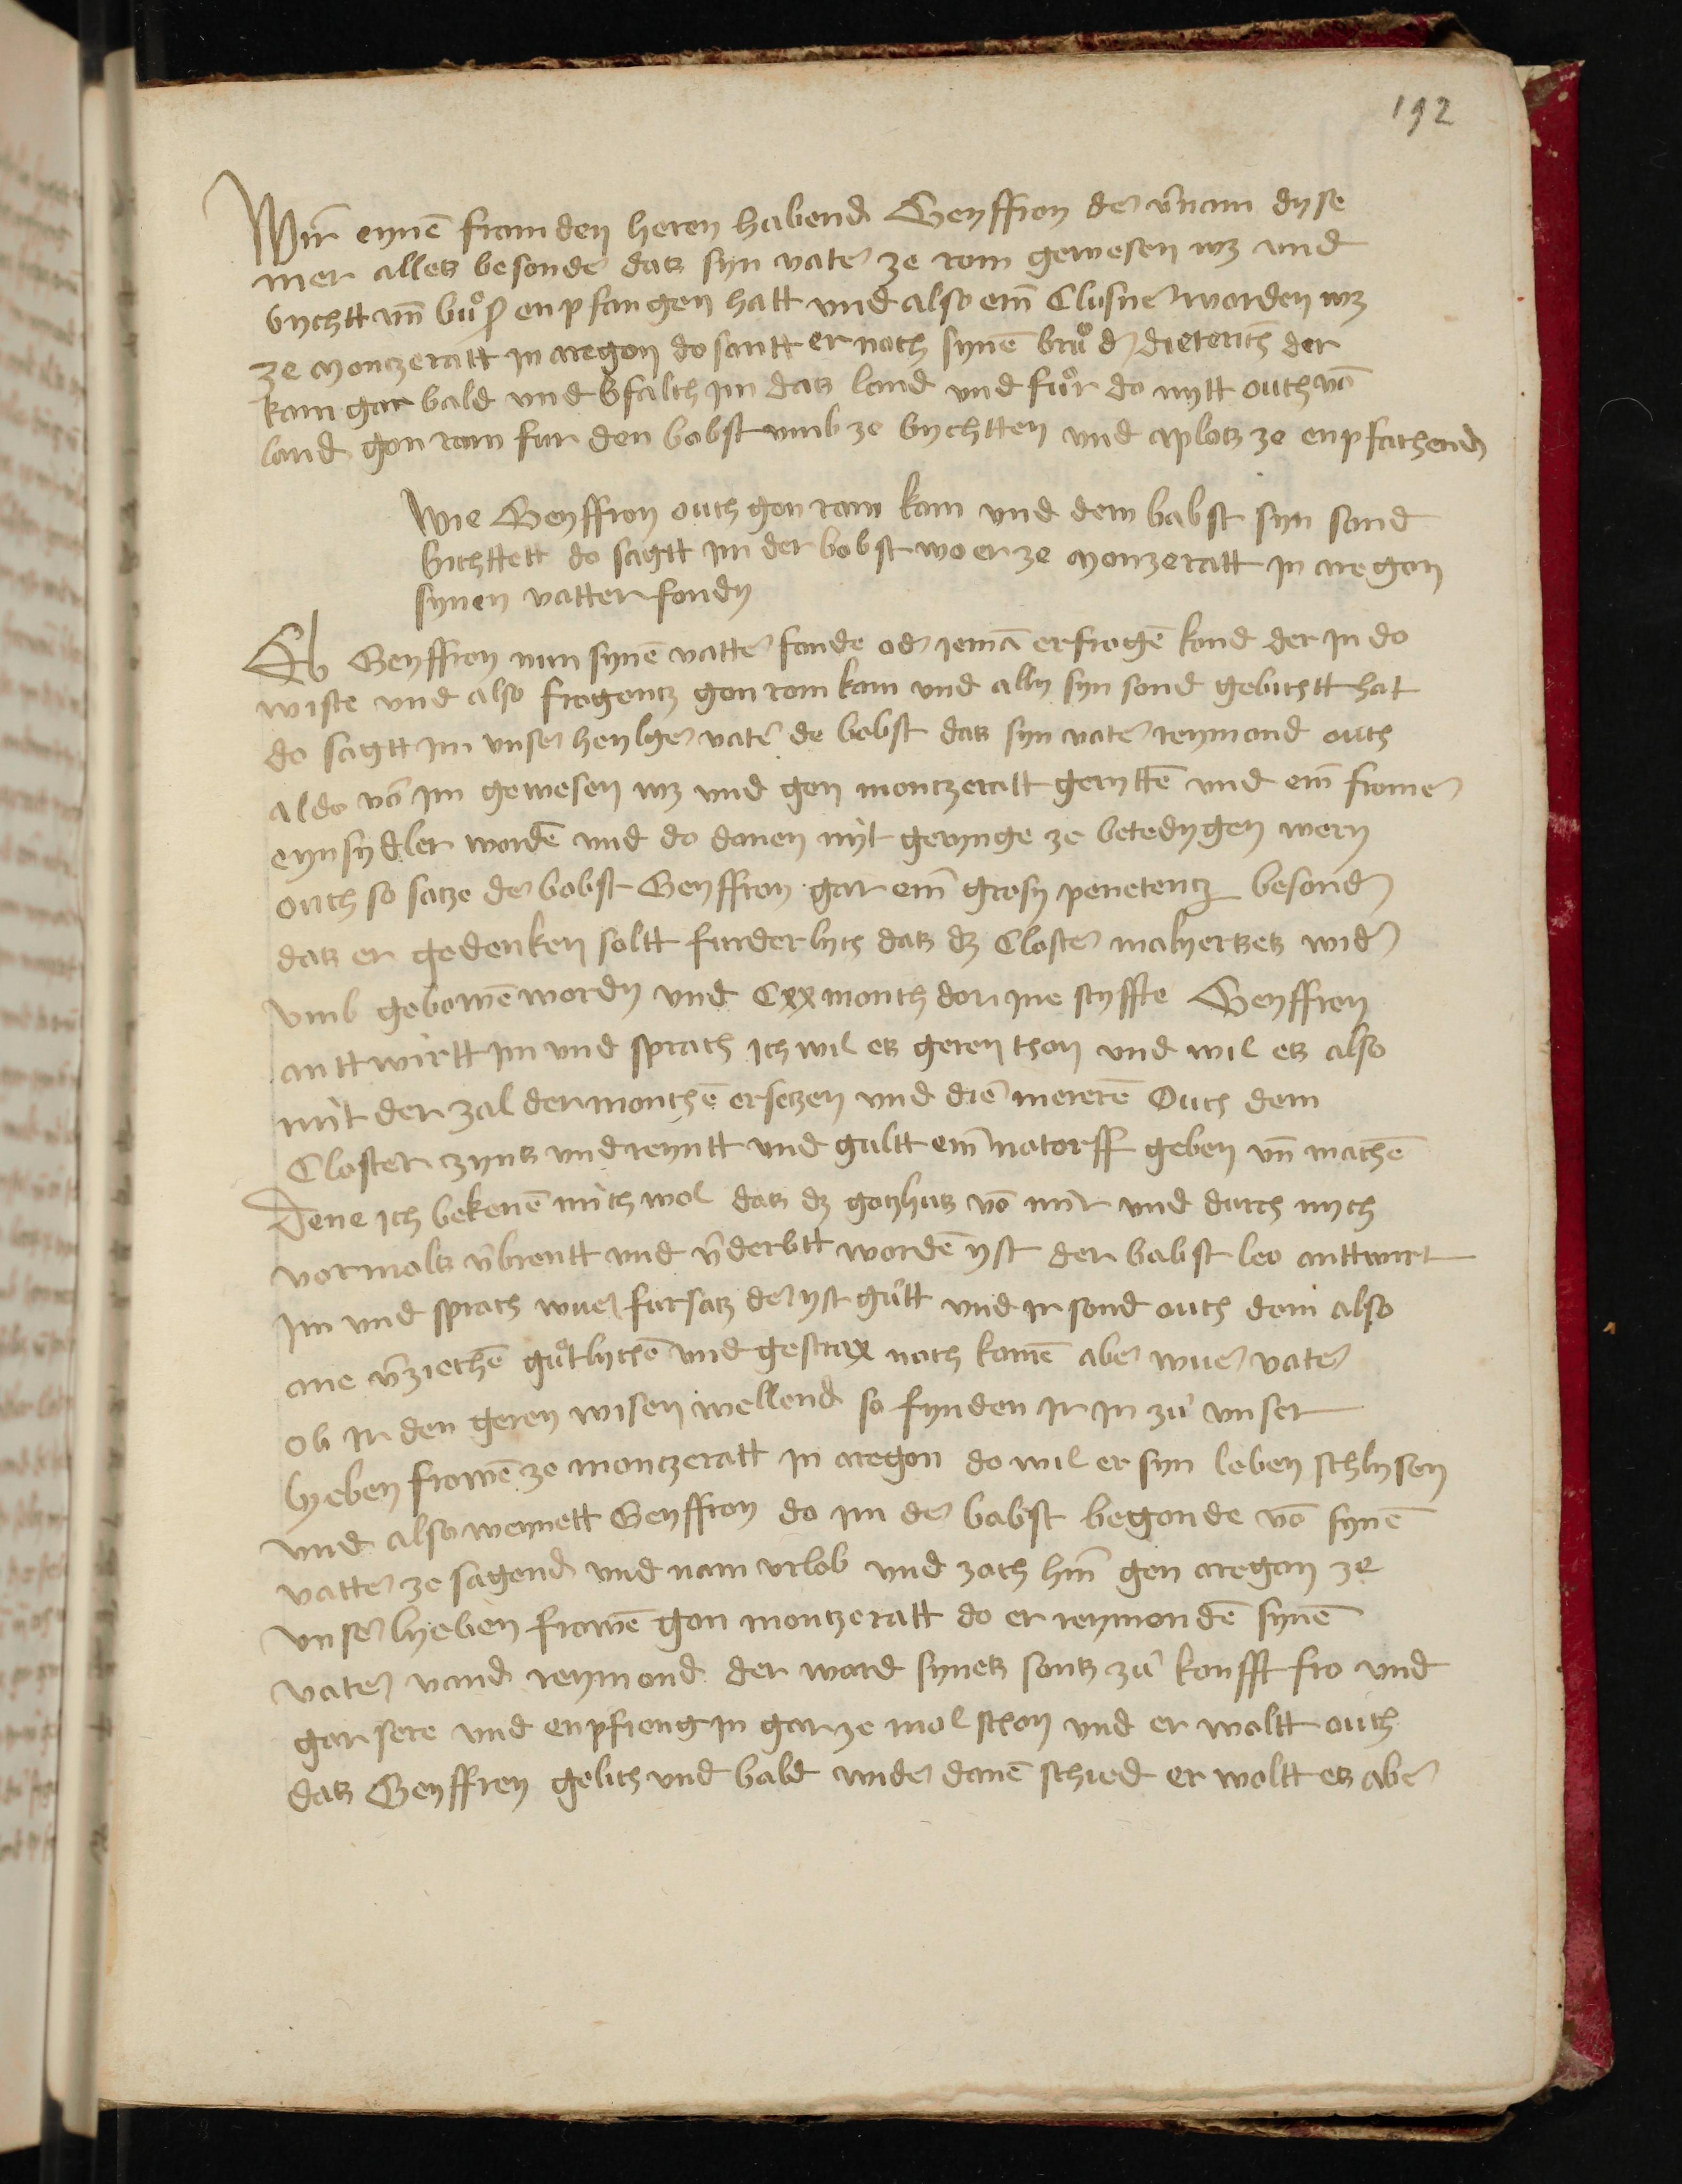 192
Wir eynē framden heren habend Geyffroy der v̄nam dyse
mer alles besonder das syn vater ze rom gewesen wz und
bychtt vn̄ bůß enpfangen hatt und also ein Clusner worden wz
ze Montzeratt in aregon do santt er nach synē brůd̄ dieterich der
kam gar bald und in das land und fůr do mytt ouch vō
land gon rom fur den babst umb ze bychtten und aplas ze enpfachend
Wie Geyffroy ouch gon rom kam und dem babst syn sond
bichttett do sagtt im der babst wo er ze Monzeratt in aregon
synen vatter fondy
Eb Geyffroy nun synē vatter fande oder iemā erfragē kond der in do
wiste und also fragentz gon rom kam und ally syn sond gebichtt hat
do sagtt im unser heylger vater de babst das syn vater reymond ouch
aldo vō im gewesen wz und gen montzeratt geryttē und ein fromer
eynsydler wordē und do danen nyt gerynge ze betedygen wery
ouch so satze der babst Geyffroy gar ein grosy penetentz besond̄
das er gedenken soltt furderlych das dz Closter malyerses wid̄
umb gebowē wordy und Cxx monch dorine styffte Geyffroy
anttwirtt im und sprach ich wil es geren thon und wil es also
mit der zal der monchē ersetzen und die mererē Ouch dem
Closter zyns und reyntt und gultt ein notorff geben vn̄ machē
Dene ich bekenē mich wol das dz gotzhus vō mir und durch mych
vormals v̄brentt und v̄derbtt wordē yst der babst leo anttwirt
im und sprach wuer fursatz der yst gůtt und ir sond ouch dem also
ane v̄ziechē gůtlychē und gestrax nach komē aber wuer vater
ob ir den geren wisen wellend so fynden ir in zů unser
lyeben frowē ze montzeratt in aregon do wil er syn leben schlysen
und also weynett Geyffroy do im der babst begonde vō synē
vatter ze sagend und nam urlob und zoch hin gen aregon ze
unser lyeben frowē gon montzeratt do er reymondē synē
vater vand reymond der ward synes sons zů konfft fro und
gar sere und enpfieng in gar ze mol schon und er woltt ouch
das Geyffroy gelich und bald wider danē schied er woltt es aber